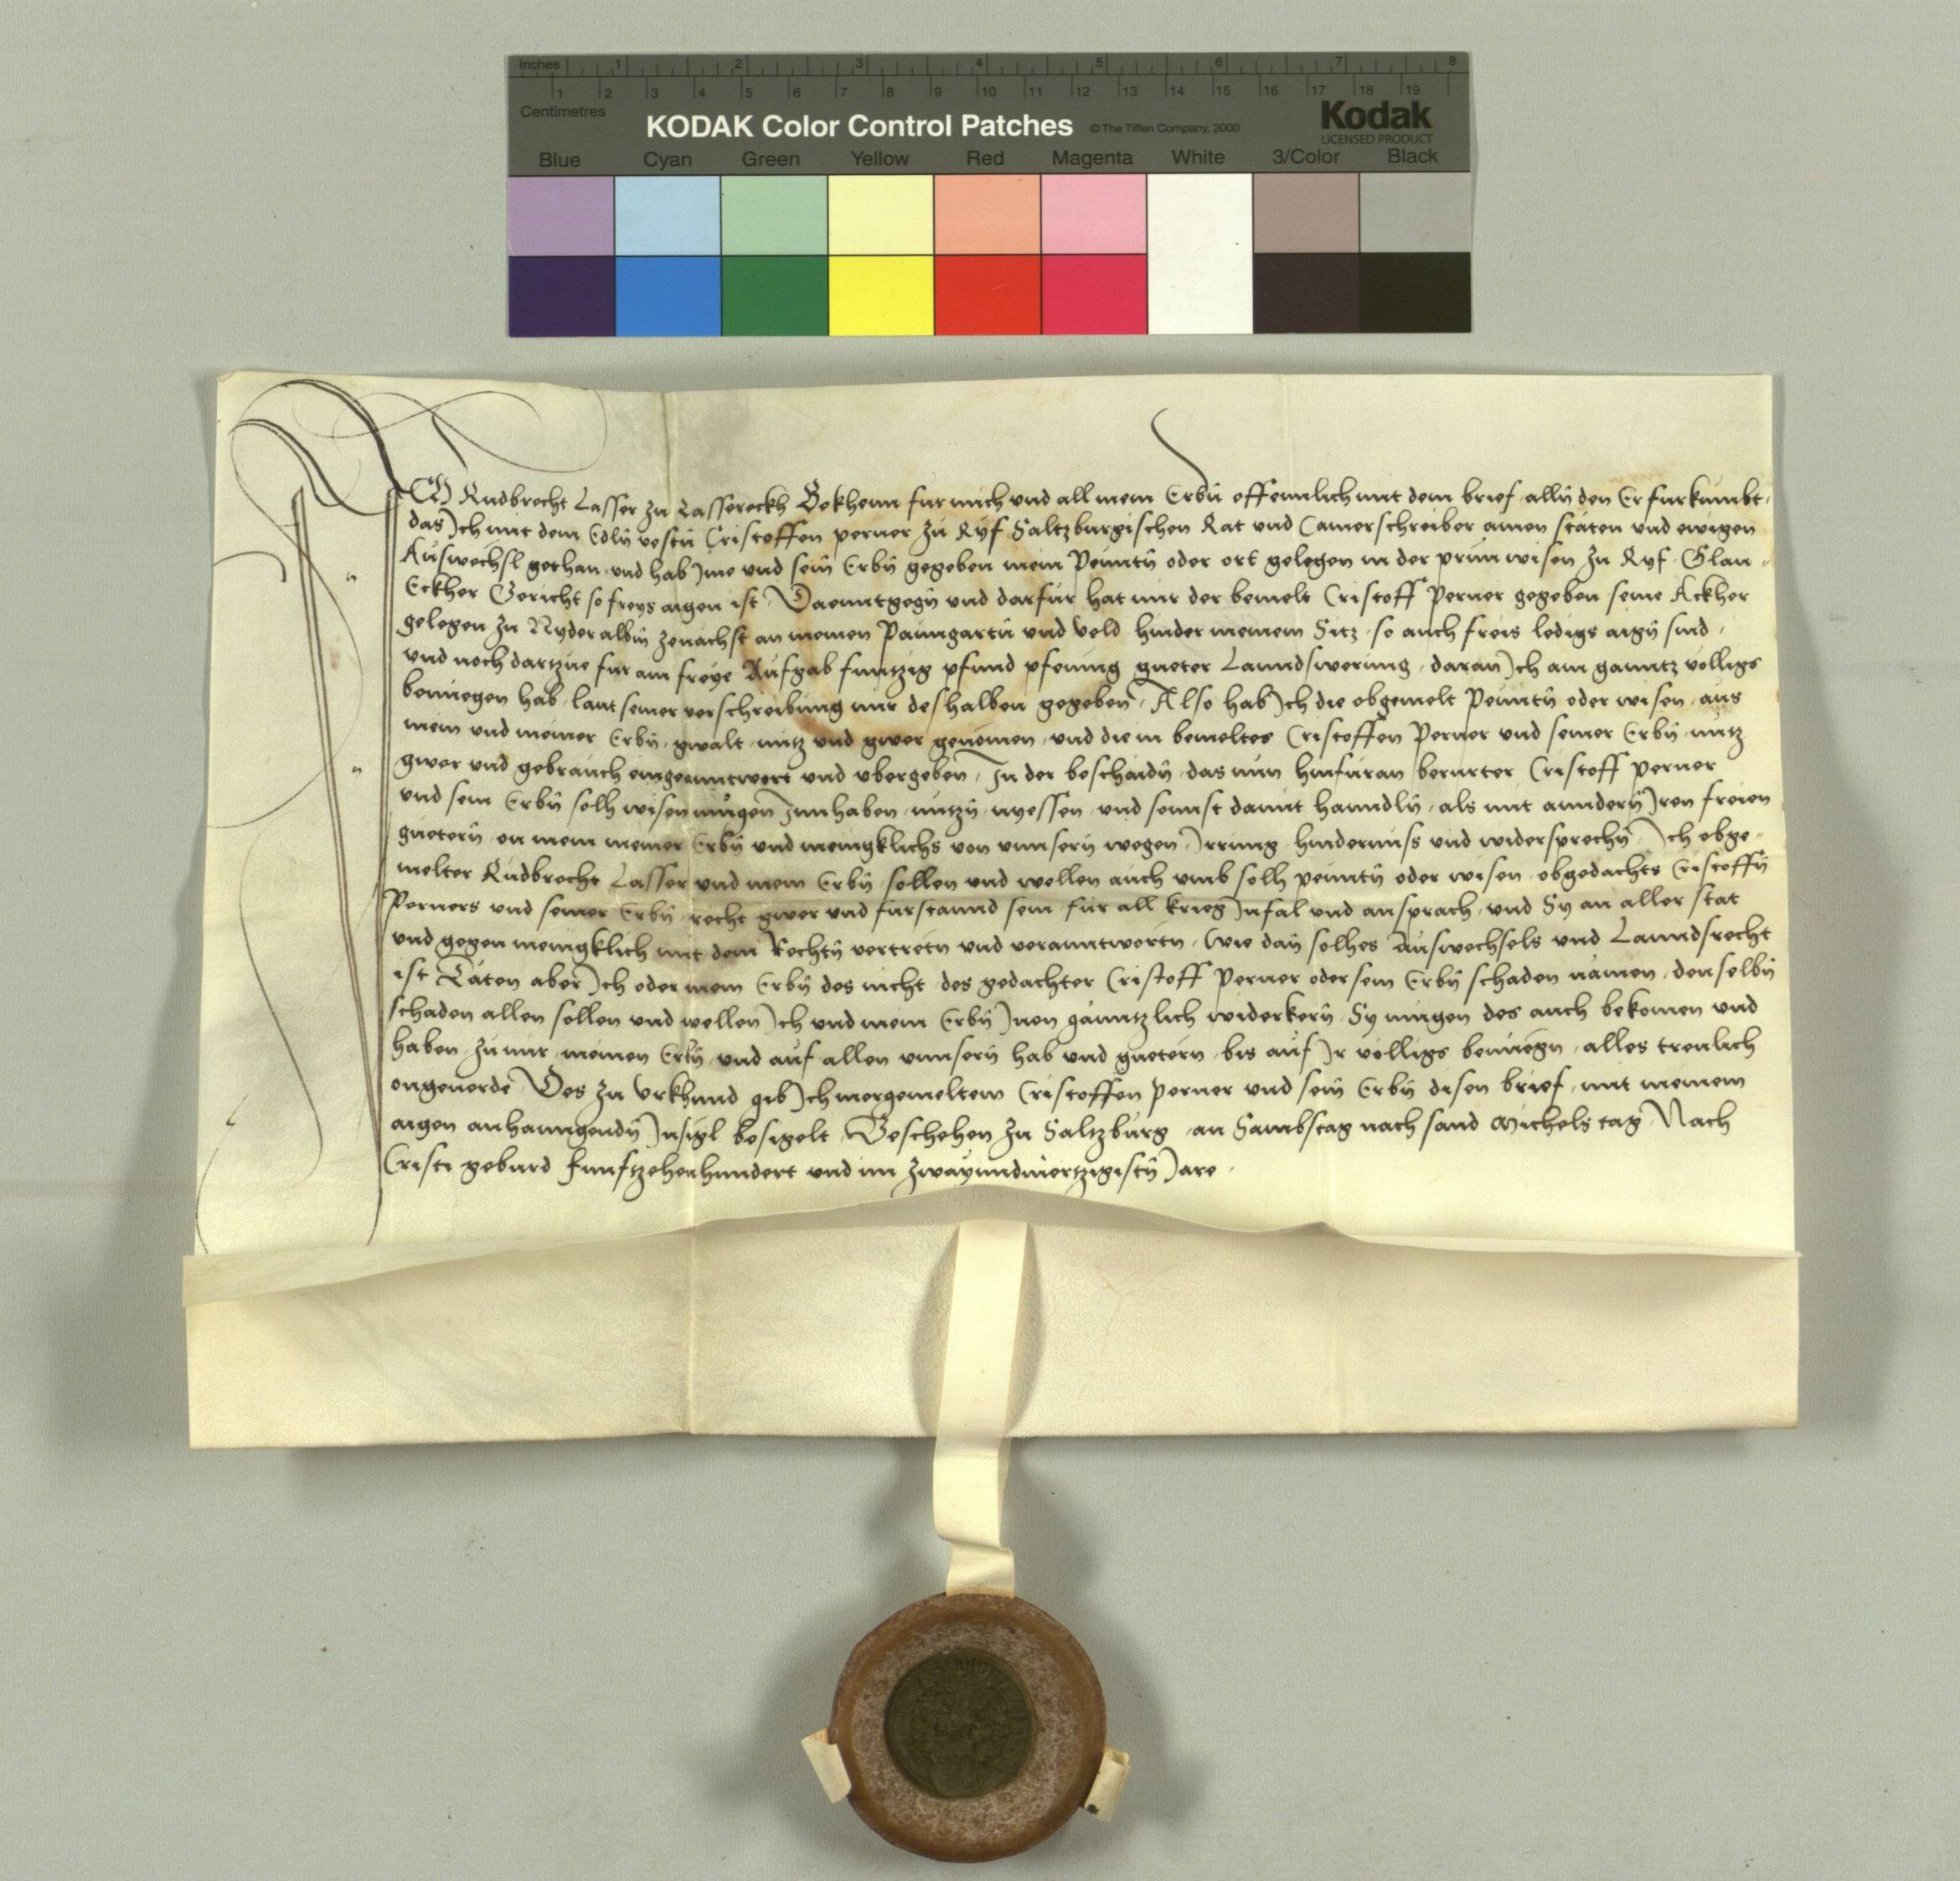 Inches 1 2 3 4 5 6 7 8
1 2 3 4 5 6 7 8 9 10 11 12 13 14 15 16 17 18 19
Centimetres
KODAK Color Control Patches © The Tiffen Company, 2000 Kodak
LICENSED PRODUCT
Blue Cyan Green Yellow Red Magenta White 3/Color Black
ICH Rudbrecht Lasser zu Lassereckh Bekhenn fur mich und all mein Erbn̄ offennlich mit dem brief alln̄ den Er furkumbt,
das Ich mit dem Edln̄ vestn̄ Cristoffen perner zu Ryf Saltzburgischen Rat und Camerschreiber ainen stäten und ewigen
Auswechsl gethan und hab Ime und sein̄ Erbn̄ gegeben mein Peuntn̄ oder ort gelegen in der prun wisen zu Ryf Glan
Eckher Gericht so freys aigen ist Daenntgegn̄ und darfur hat mir der bemelt Cristoff Perner gegeben seine Ackher
gelegen zu Nyderalbn̄ zenachst an meinen Paumgartn̄ und Veld hinder meinem Sitz so auch freis ledigs aign̄ sind
und noch dartzue fur ain freye Aufgab funtzig pfund pfening gueter Lanndswerung daran Ich ain ganntz völligs
benuegen hab laut seiner verschreibung mir deshalben gegeben Also hab Ich die obgemelt Peuntn̄ oder wisen aus
mein und meiner Erbn̄ gwalt nutz und gwer genomen und die in bemeltes Cristoffen Perner und seiner Erbn̄ nutz
gwer und gebrauch eingeanntwort und ubergeben In der beschaidn̄ das nun hinfuran berurter Cristoff perner
und sein Erbn̄ solh wisen mugen Innhaben nutzn̄ nyessen und sonnst damit hanndln̄ als mit anndern̄ Iren freien
guetern̄ on mein meiner Erbn̄ und menigklichs von unnsern̄ wegen Irrung hindernuss und widersprechn̄ Ich obge
melter Rudbrecht Lasser und mein Erbn̄ sollen und wellen auch umb solh peuntn̄ oder wisen obgedachts Cristoffn̄
Perners und seiner Erbn̄ recht gwer und furstannd sein fur all krieg Infal und ansprach und Sy an aller stat
und gegen menigklich mit dem Rechtn̄ vertretn und veranntwortn wie dan̄ solhes Auswechsels und Lanndsrecht
ist Täten aber Ich oder mein Erbn̄ des nicht des gedachter Cristoff Perner oder sein Erbn̄ schaden nämen denselbn̄
schaden allen sollen und wellen Ich und mein Erbn̄ Inen ganntzlich widerkern̄ Sy mugen des auch bekomen und
haben zu mir meinen Erbn̄ und auf allen unnsern̄ hab und guetern bis auf Ir völligs benüegn alles treulich
ongeuerde Des zu Urkhund gib Ich mergemeltem Cristoffen Perner und sein̄ Erbn̄ disen brief mit meinem
aigen anhanngendn̄ Insigl besigelt Geschehen zu Saltzburg an Sambstag nach sand Michels tag Nach
Cristi geburd funftzehenhundert und im zwayundviertzigistn̄ Jare